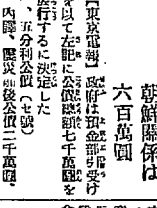 朝鮮關係は
六百萬圓
【東京電報】政府は預金部引受け
を以て左記に公債總額七千萬圓を
發行するに決定した
五分利公債(セ號)
內譯、震災善後公債二千萬圓、